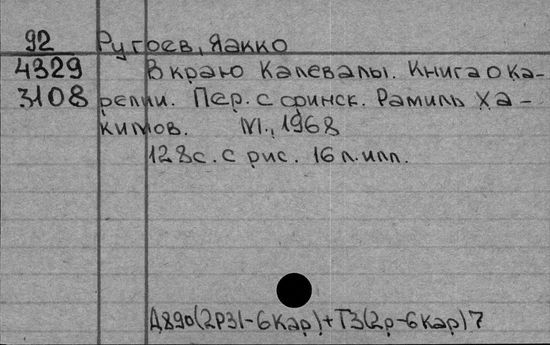 92 Ругоев, Яакко
4329 В краю Калевалы. Книга о Ка-
3108 релии. Пер. с финск. Рамиль Ха-
кимов. М., 1968
128с. с рис. 16 л. илл.
Д890(2Р31-6Кар)+Т3(2р-6Кар)7